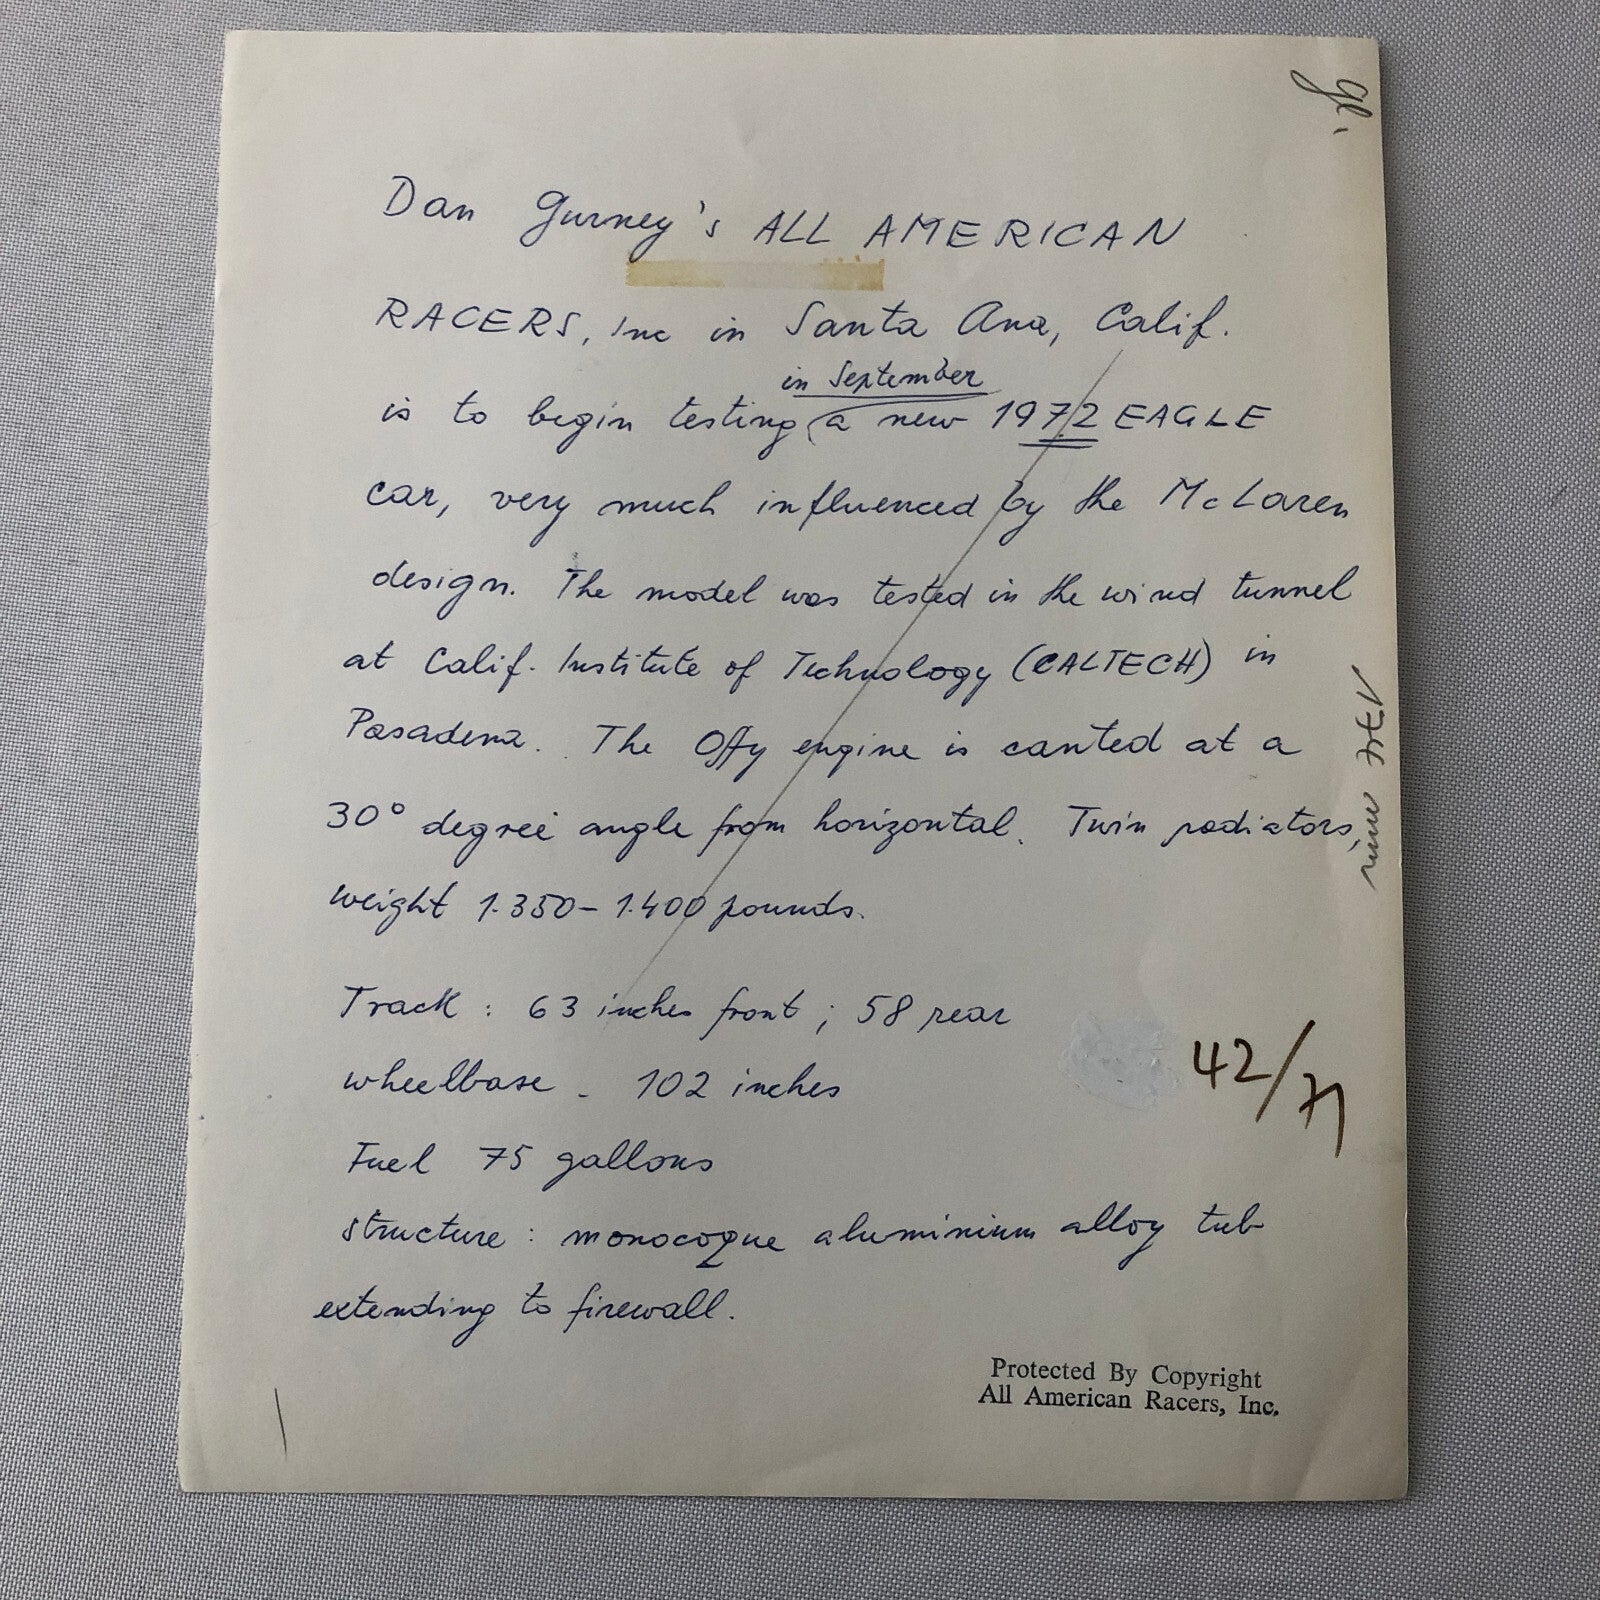 gl.
Dan Gurney's ALL AMERICAN
RACERS, Inc in Santa Ana, Calif.
in September
is to begin testing a new 1972 EAGLE
car, very much influenced by the McLaren
design. The model was tested in the wind tunnel
at Calif. Institute of Technology (CALTECH) in
Pasadena. The Offy engine is canted at a
30° degree angle from horizontal. Twin radiators,
weight 1.350-1.400 pounds.
Track : 63 inches front ; 58 rear
wheelbase - 102 inches
Fuel 75 gallons
structure : monocoque aluminium alloy tub
extending to firewall.
42/71
Protected By Copyright
All American Racers, Inc.